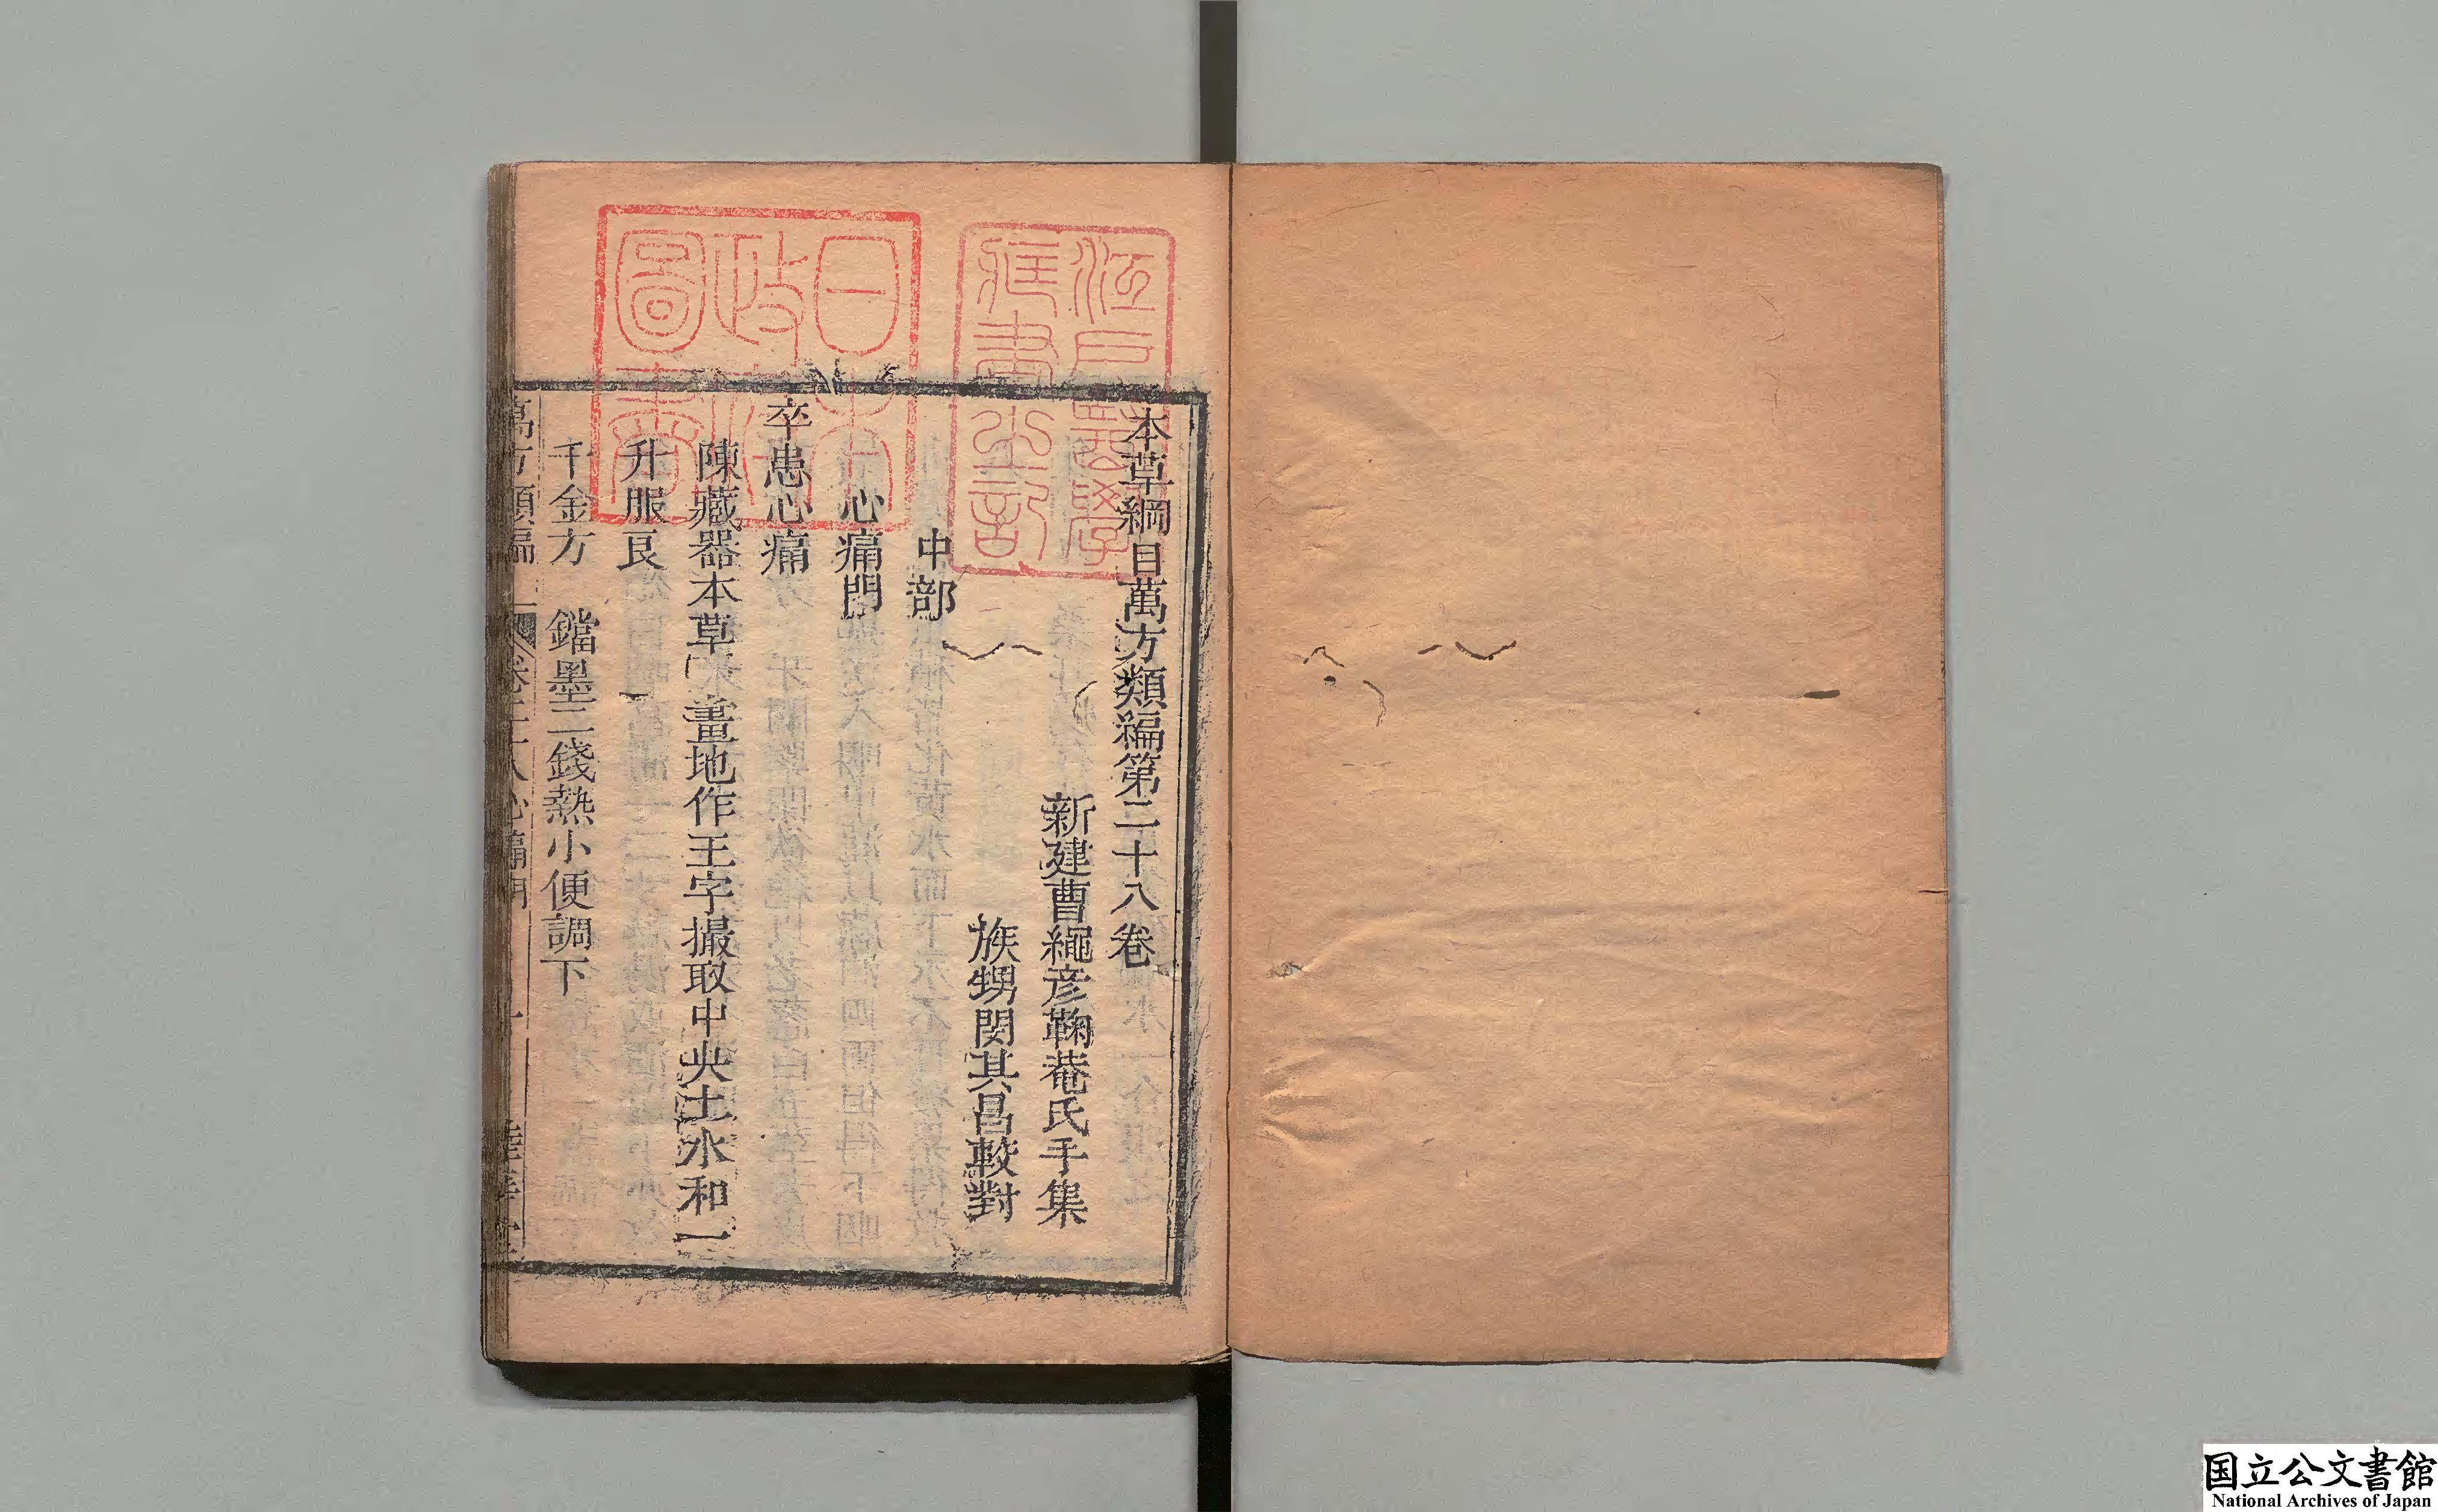 本草綱目萬方類編第二十八卷
新建曹繩彦鞠菴氏手集
族甥閔其昌較對
中部
心痛門
卒患心痛
陳藏器本草 畫地作王字撮取中央土水和一
升服良
千金方 鐺墨二錢熱小便調下
萬方類編
卷二十八心痛門
一
江戸醫學
藏書之記
日本
政府
圖書
国立公文書館
National Archives of Japan